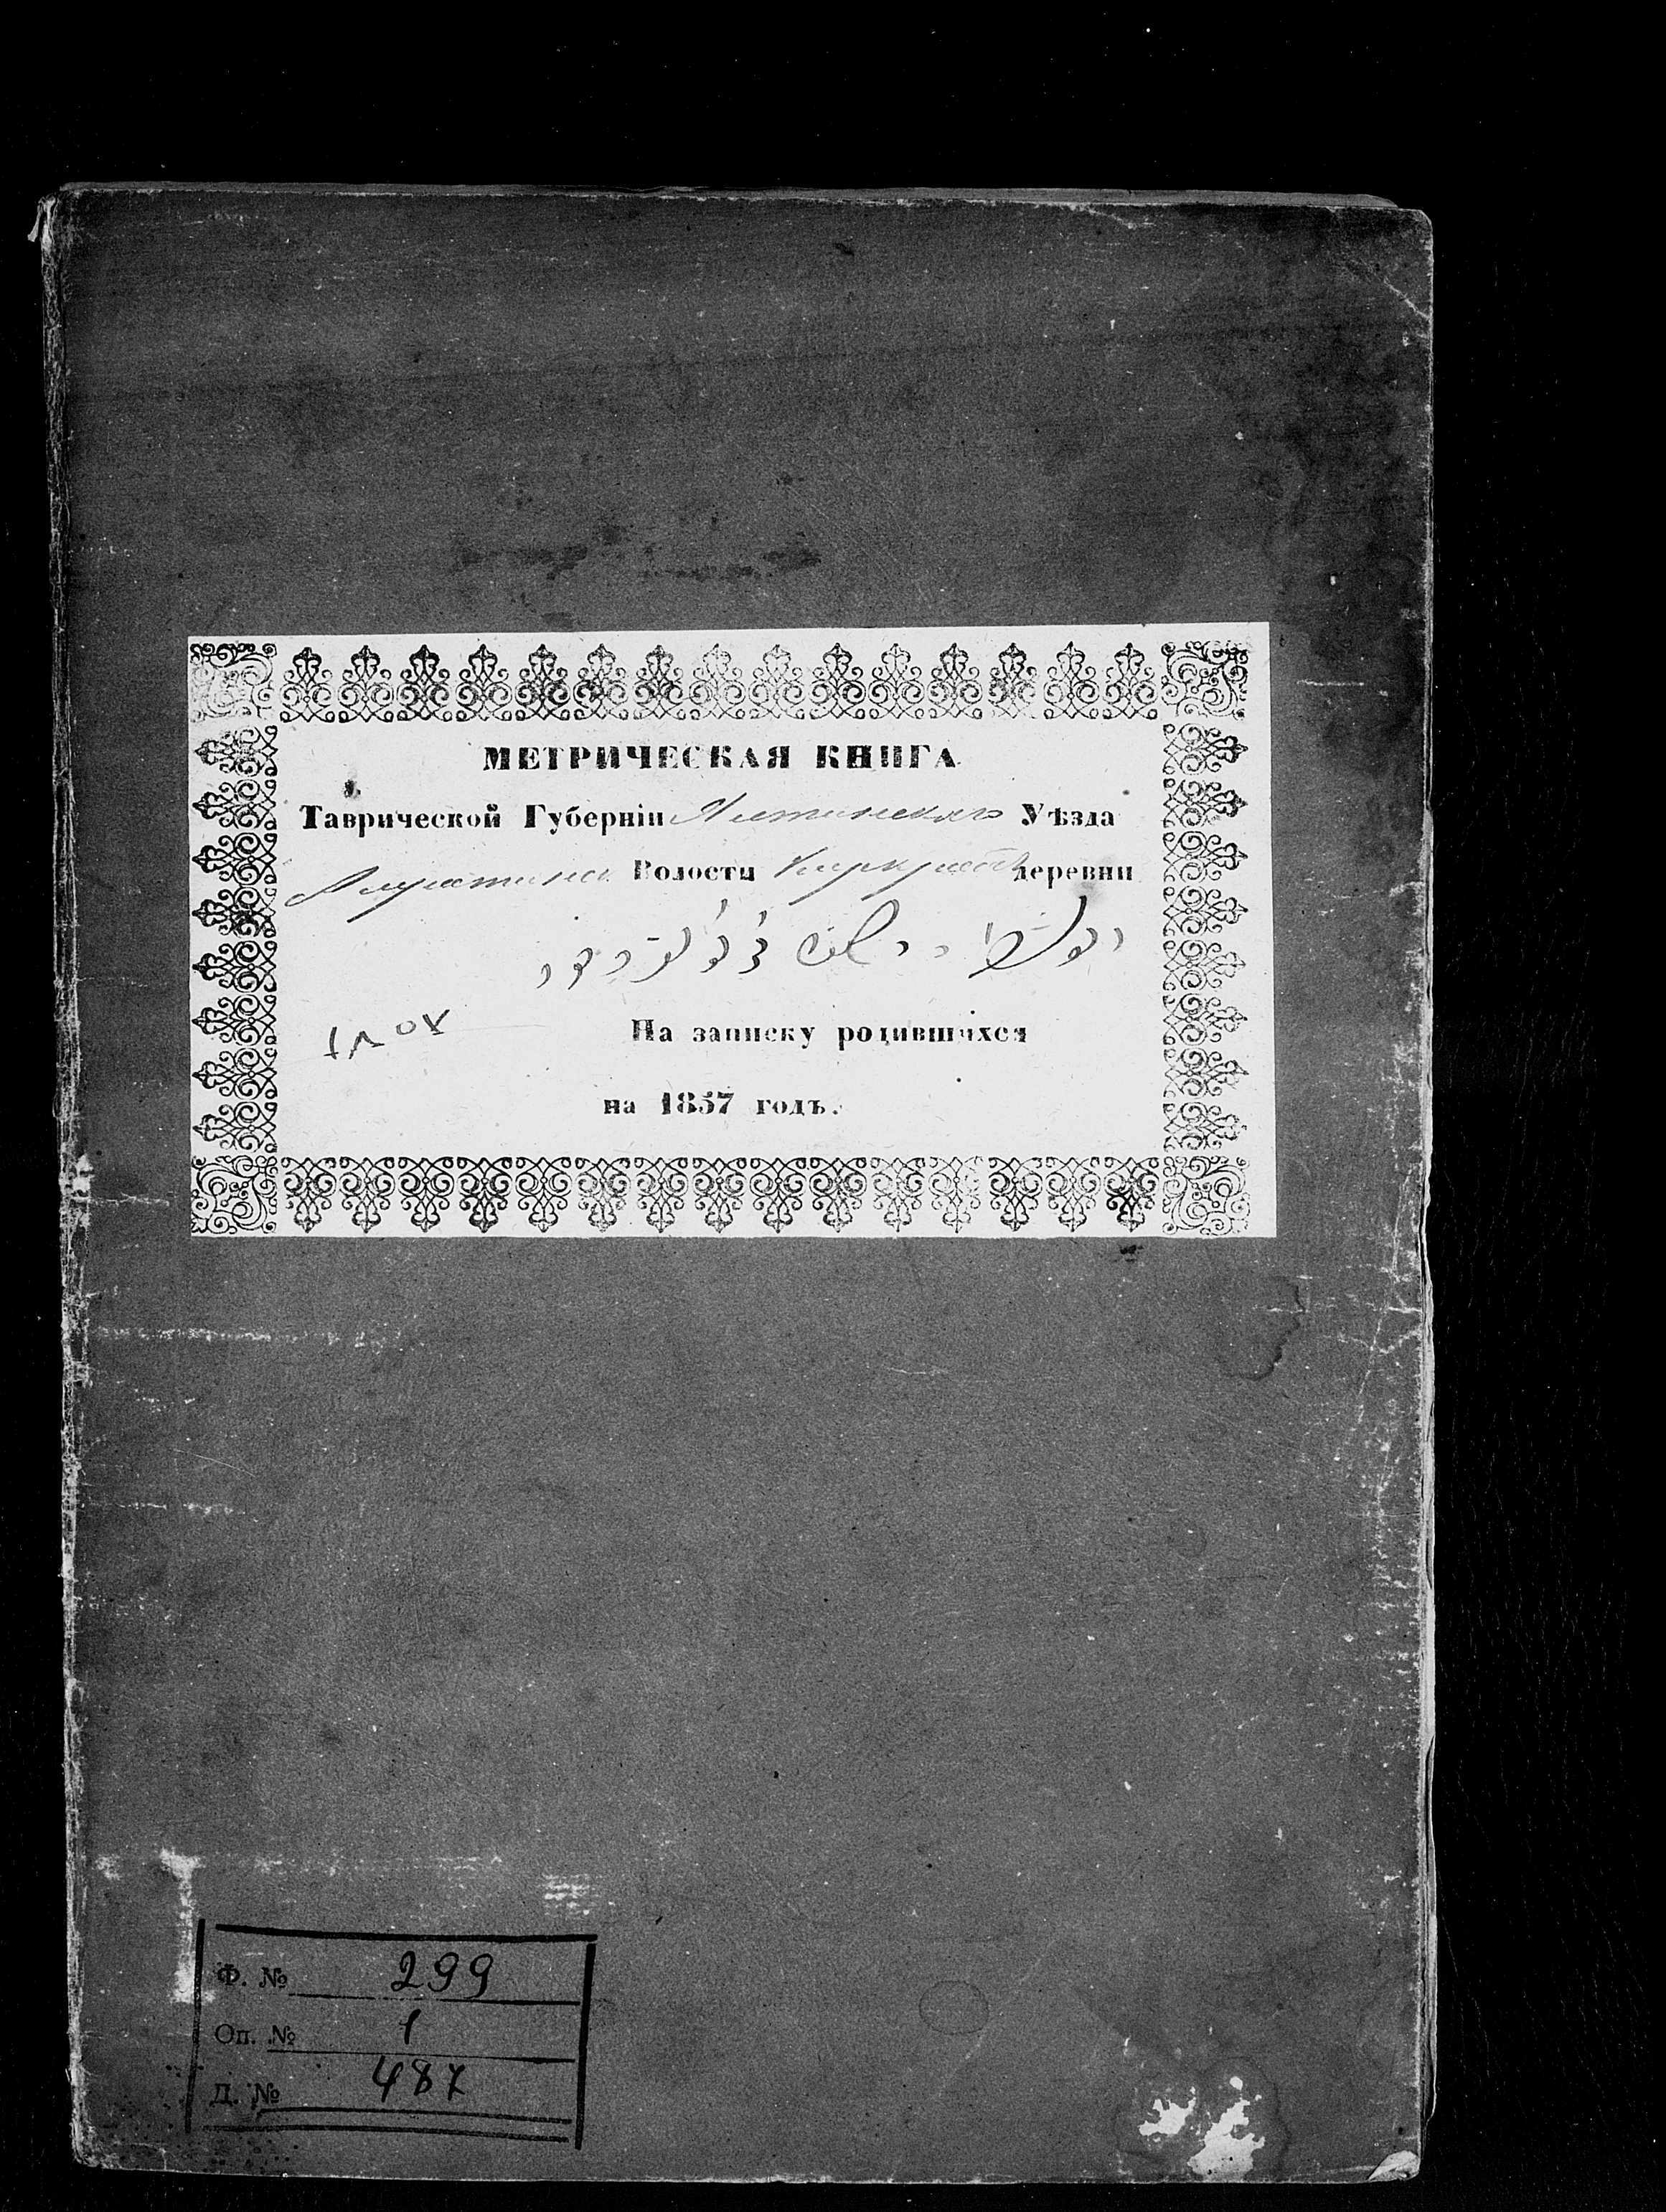 МЕТРИЧЕСКАЯ КНИГА
Таврической Губерніи Ялтинскаго Уѣзда
Волости деревни
١٨٥٧
На записку родившихся
на 1857 годъ.
Ф. № 299
Оп. № 1
Д. № 487